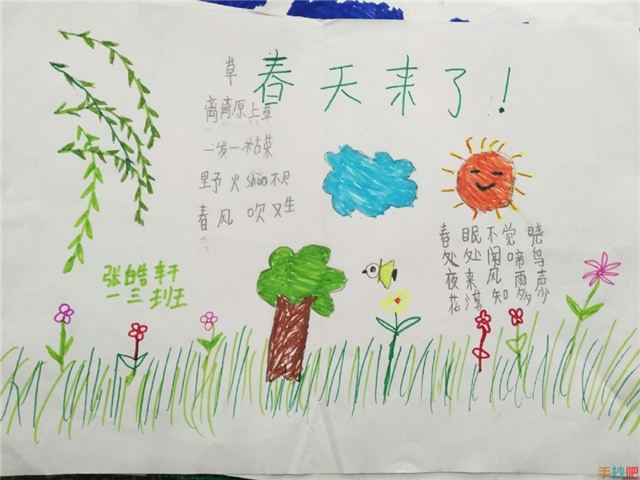 春天来了!
草
离离原上草
一岁一枯荣
野火shao不尽
春风吹又生
春眠不觉晓
处处闻啼鸟
夜来风雨声
花落知多少
张皓轩
一三班
手抄吧